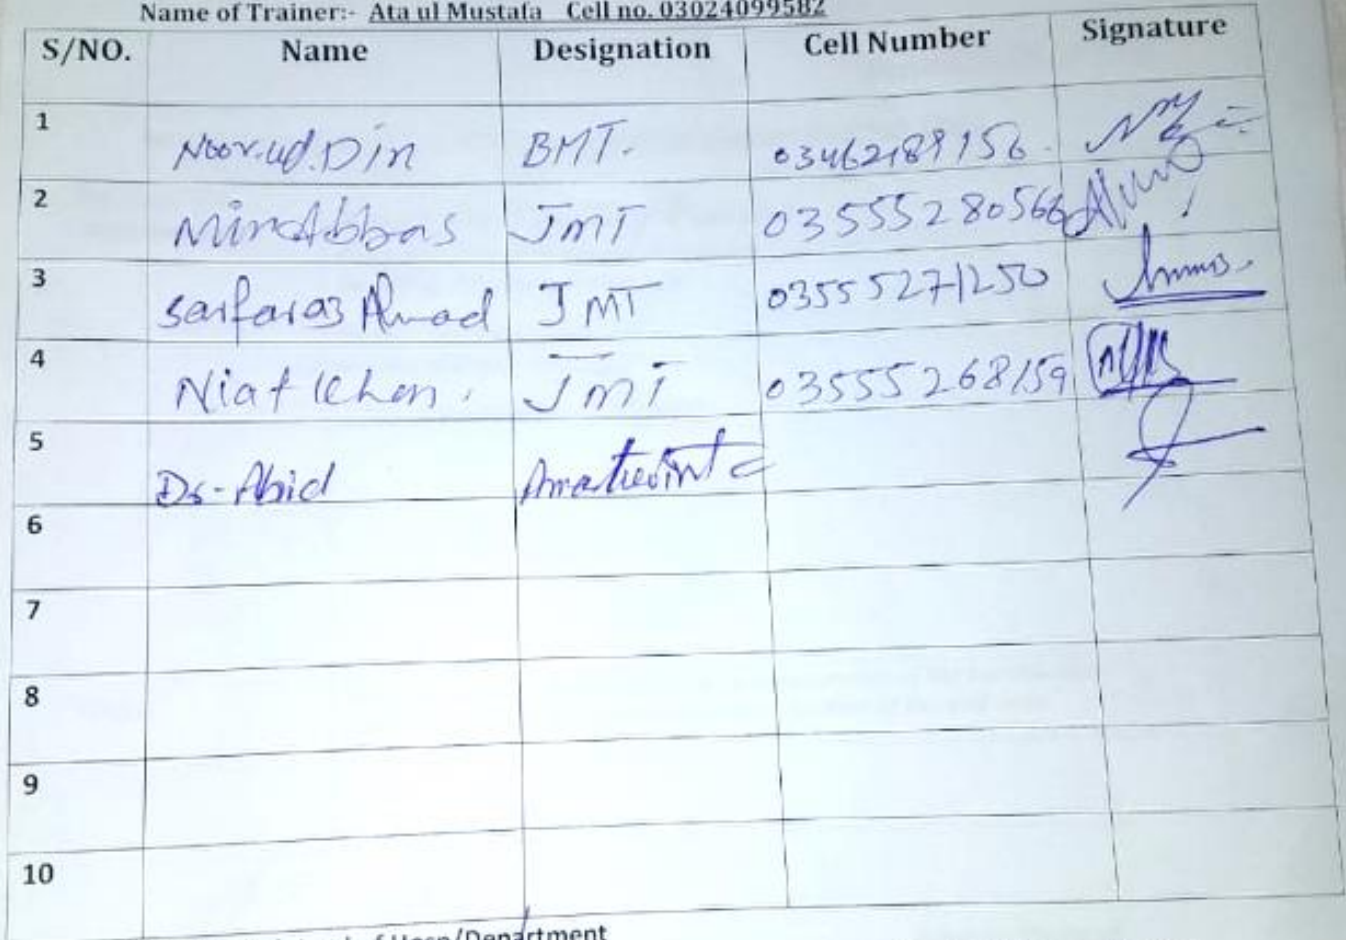 Name of Trainer:- Ata ul Mustafa Cell no. 03024099582
S/NO. Name Designation Cell Number Signature
1 Noor.ud.Din BMT. 03462189156
2 MirzAbbas JMT 03555280566
3 Sarfaraz Ahmad JMT 03555271250
4 Niat Khan. JMT 03555268159
5 Dr-Abid
6
7
8
9
10
Hosp/Department